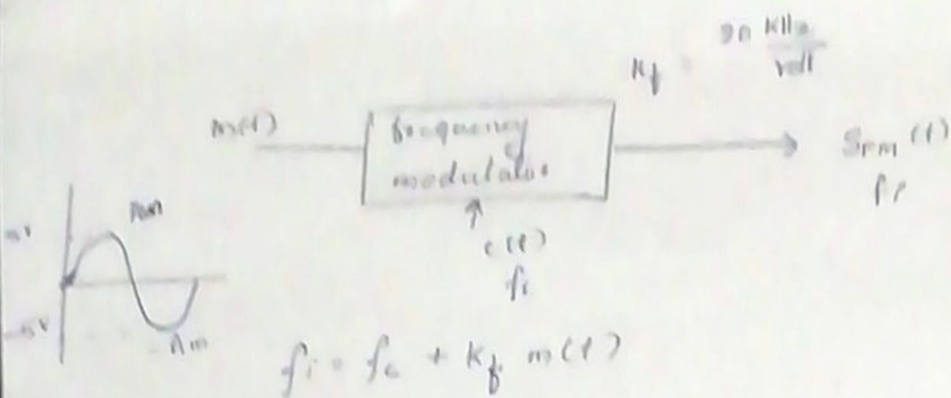 Kf
KHz
volt
m(t)
frequency
modulator
SFM(t)
fi
c(t)
fc
Am
5V
-5V
-Am
fi = fc + Kf m(t)